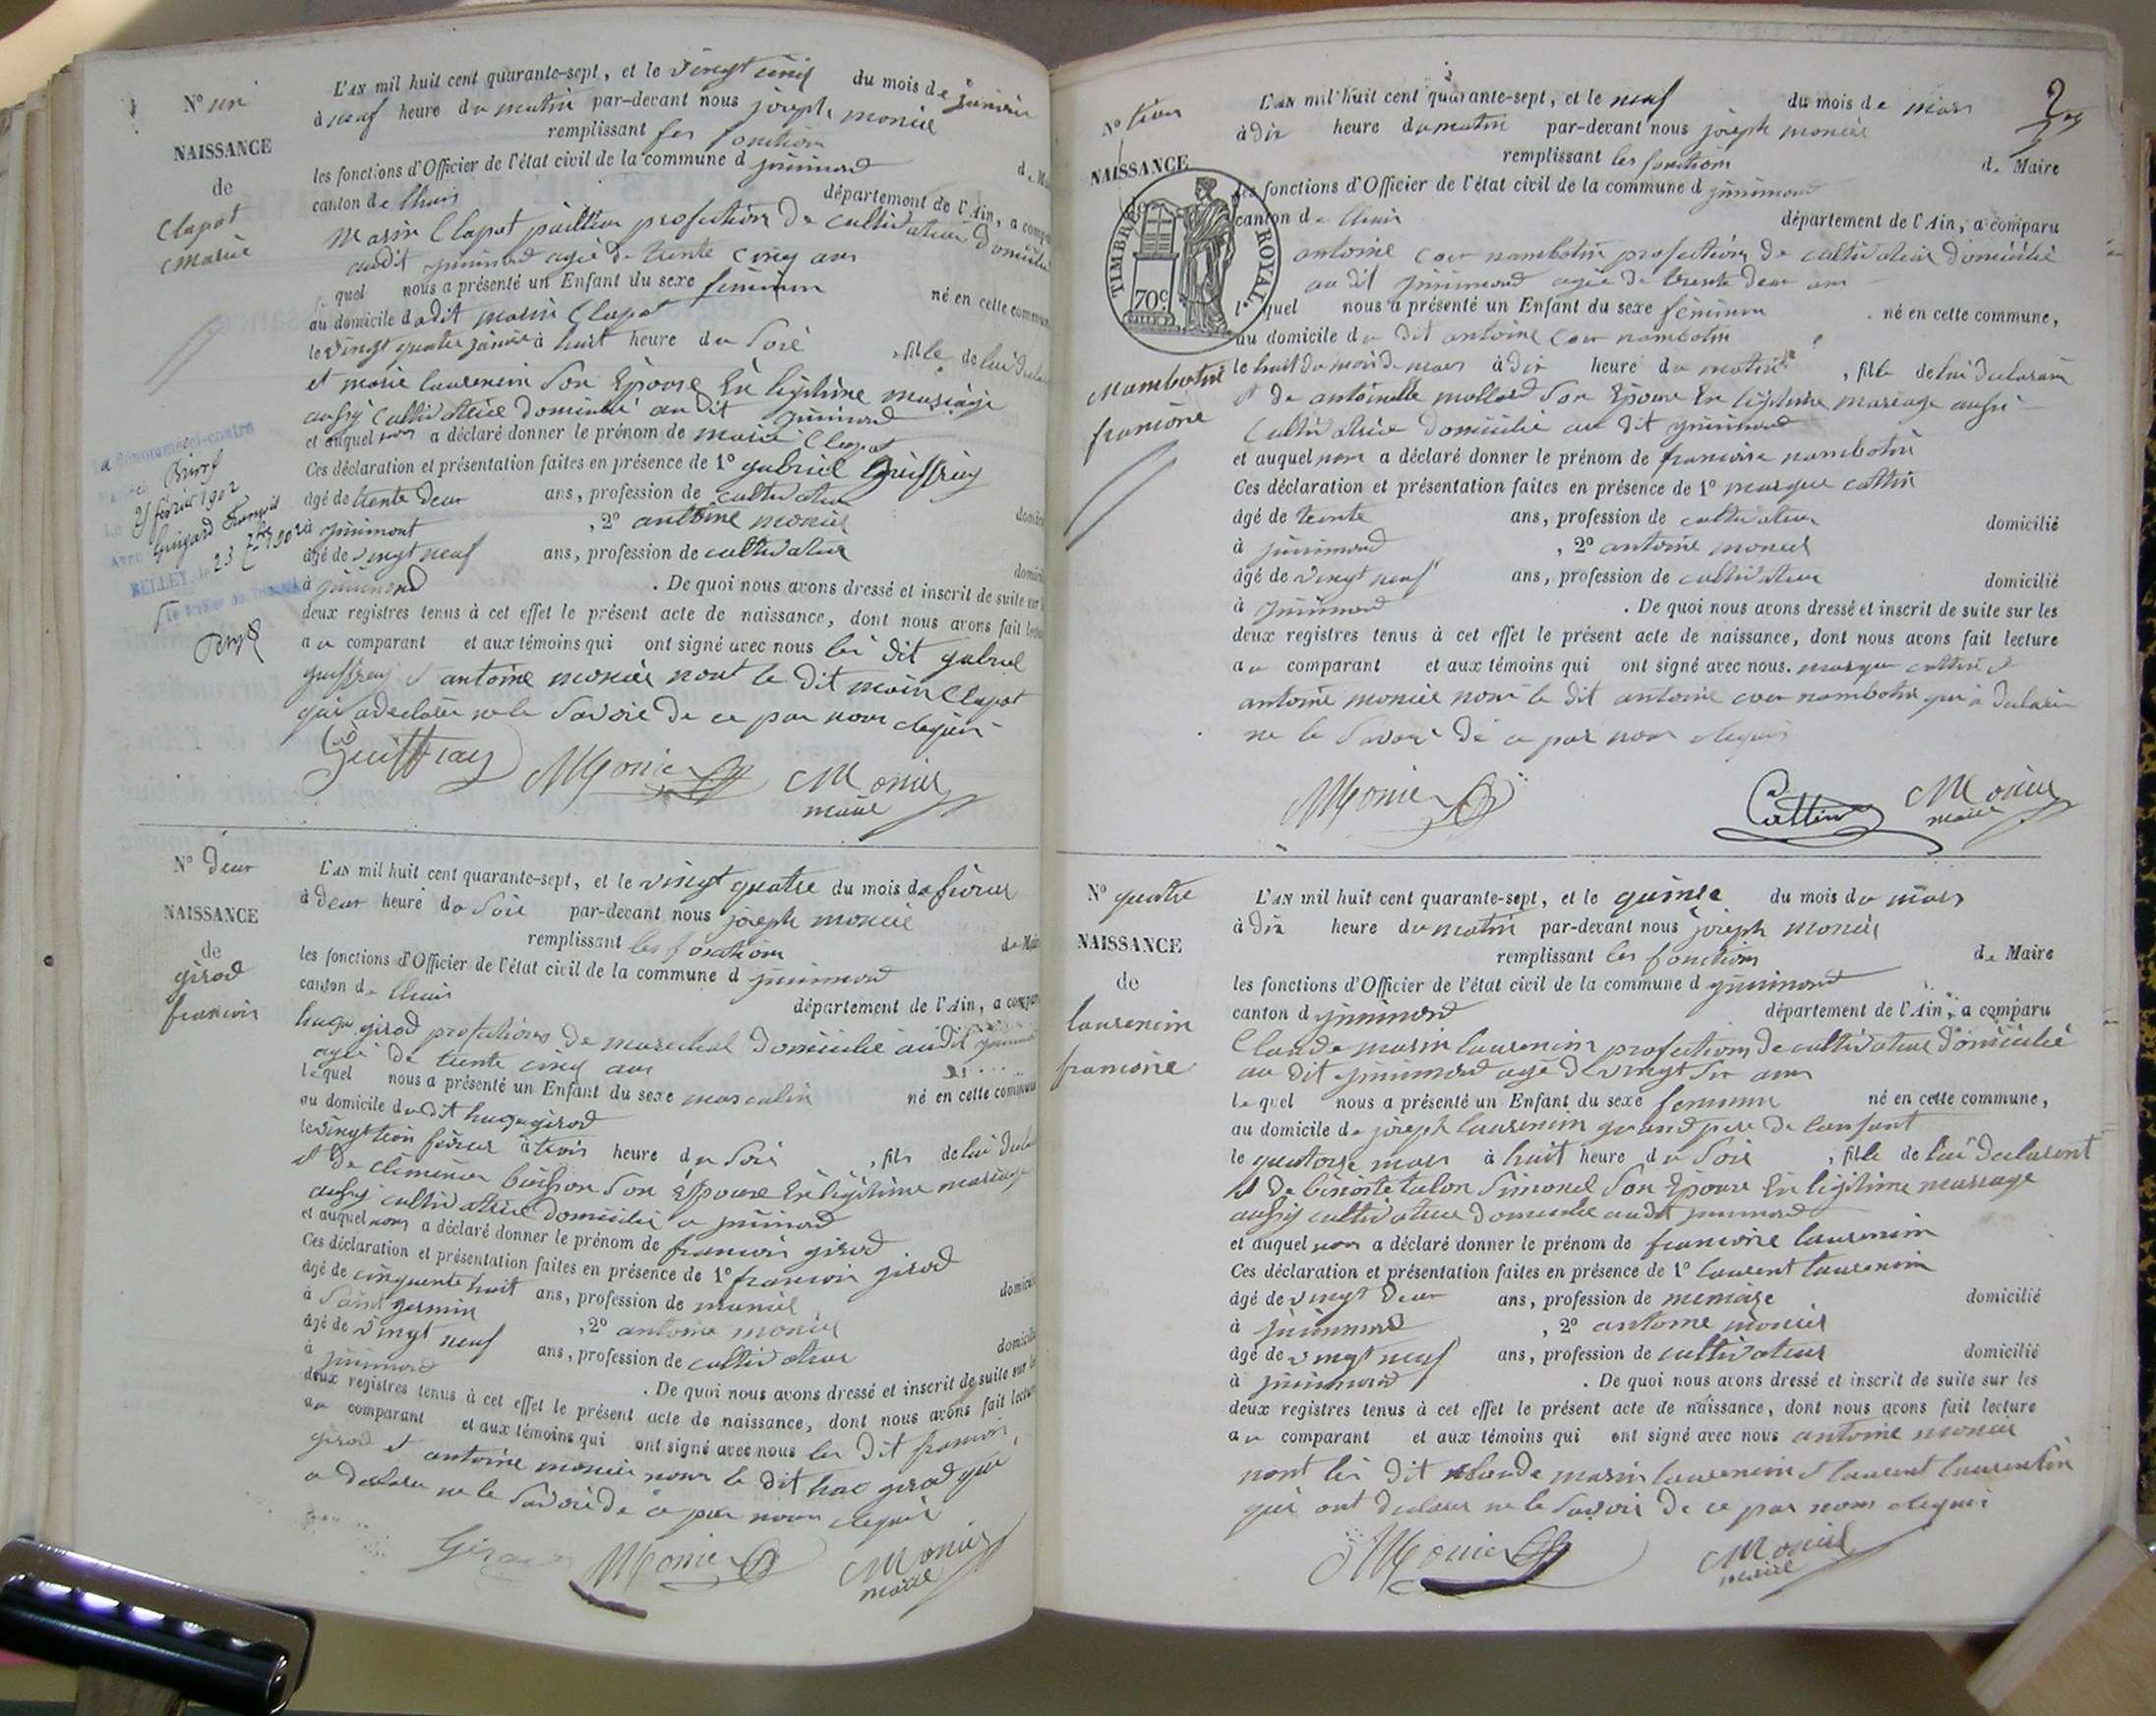 N° un
NAISSANCE
de
Clapot
Marie
L'AN mil huit cent quarante-sept, et le vingt cinq du mois de janvier
à neuf heure du matin par-devant nous joseph monier
remplissant les fonction
les fonctions d'Officier de l'état civil de la commune d jujurieux
canton de lhuis département de l'Ain, a comp
Marin Clapot profection de cultivateur domicilie
audit agée de trente cinq ans
quel nous a présenté un Enfant du sexe féminin né en cette commun
au domicile dudit marin Clapot
le vingt quatre janvier à huit heure du Soir , fille de lui
et marie laurencin Son Epouse En légitime mariage
aussy Cultivatrice domicilié audit
et auquel nous a déclaré donner le prénom de marie Clapot
Ces déclaration et présentation faites en présence de 1° gabriel Guiffray
âgé de trente deux ans, profession de cultivateur
, 2° antoine monier
âgé de vingt neuf ans, profession de cultivateur
à . De quoi nous avons dressé et inscrit de suite sur
deux registres tenus à cet effet le présent acte de naissance, dont nous avons fait lectu
au comparant et aux témoins qui ont signé avec nous les dit gabriel
guiffray et antoine monier nont le dit marin Clapot
qui a declaré ne le Savoir de ce par nous requis
Guiffray Monier Monier
maire
25 février 1902
N° deux
NAISSANCE
de
girod
francois
L'AN mil huit cent quarante-sept, et le vingt quatre du mois de fevrier
à deux heure du Soir par-devant nous joseph monier
remplissant les fonctions de Mair
les fonctions d'Officier de l'état civil de la commune d
canton de lhuis département de l'Ain, a compar
hugue girod profections de marechal domicilié audit
agée de trente cinq ans
lequel nous a présenté un Enfant du sexe masculin né en cette commune
au domicile dudit hugue girod
le vingt trois fevrier à trois heure du Soir , fils de lui
et de clemence buisson Son Epouse En légitime mariage
aussy cultivatrice domicilié a
et auquel nous a déclaré donner le prénom de francois girod
Ces déclaration et présentation faites en présence de 1° francois girod
âgé de cinquante huit ans, profession de domicili
à Saint germin , 2° antoine monier
âgé de vingt neuf ans, profession de cultivateur domicili
à . De quoi nous avons dressé et inscrit de suite sur
deux registres tenus à cet effet le présent acte de naissance, dont nous avons fait lecture
au comparant et aux témoins qui ont signé avec nous les dit francois
girod et antoine monier nom le dit hue girod qui
a declaré ne le Savoir de ce par nous requis
Girod Monier Monier
maire
2
N° trois
NAISSANCE
TIMBRE ROYAL.
70c
Nambotin
francoise
L'AN mil huit cent quarante-sept, et le neuf du mois de mars
à dix heure du matin par-devant nous joseph monier
remplissant les fonctions de Maire
les fonctions d'Officier de l'état civil de la commune d
canton de lhuis département de l'Ain, a comparu
antoine nambotin profections de cultivateur domicilié
au dit agée de trente deux ans
lequel nous a présenté un Enfant du sexe féminin né en cette commune,
au domicile du dit antoine nambotin
le huit du mois de mars à dix heure du matin , fille de lui declarant
et de antoinette mollard Son Epouse En légitime mariage aussi
Cultivatrice domicilié au dit
et auquel nous a déclaré donner le prénom de francoise nambotin
Ces déclaration et présentation faites en présence de 1° marque cattin
âgé de trente ans, profession de cultivateur domicilié
à , 2° antoine monier
âgé de vingt neuf ans, profession de cultivateur domicilié
à . De quoi nous avons dressé et inscrit de suite sur les
deux registres tenus à cet effet le présent acte de naissance, dont nous avons fait lecture
au comparant et aux témoins qui ont signé avec nous. marque cattin et
antoine monier nom le dit antoine nambotin qui a declaré
ne le Savoir de ce par nous requis
Monier Cattin Monier
maire
N° quatre
NAISSANCE
de
laurencin
francoise
L'AN mil huit cent quarante-sept, et le quinze du mois du mars
à dix heure du matin par-devant nous joseph monier
remplissant les fonctions de Maire
les fonctions d'Officier de l'état civil de la commune d
canton d département de l'Ain, a comparu
Claude marin laurencin profections de cultivateur domicilié
au dit agé de vingt Six ans
lequel nous a présenté un Enfant du sexe feminin né en cette commune,
au domicile de joseph laurencin grand pere de lenfant
le quatorze mars à huit heure du Soir , fille de lui declarent
et de benoite talon Simonel Son Epouse En légitime mariage
aussy cultivatrice domicilié audit
et auquel nous a déclaré donner le prénom de francoise laurencin
Ces déclaration et présentation faites en présence de 1° laurent laurencin
âgé de vingt deux ans, profession de domicilié
à , 2° antoine monier
âgé de vingt neuf ans, profession de cultivateur domicilié
à . De quoi nous avons dressé et inscrit de suite sur les
deux registres tenus à cet effet le présent acte de naissance, dont nous avons fait lecture
au comparant et aux témoins qui ont signé avec nous antoine monier
nont les dit Claude marin laurencin et laurent laurencin
qui ont declaré ne le Savoir de ce par nous requis
Monier Monier
maire